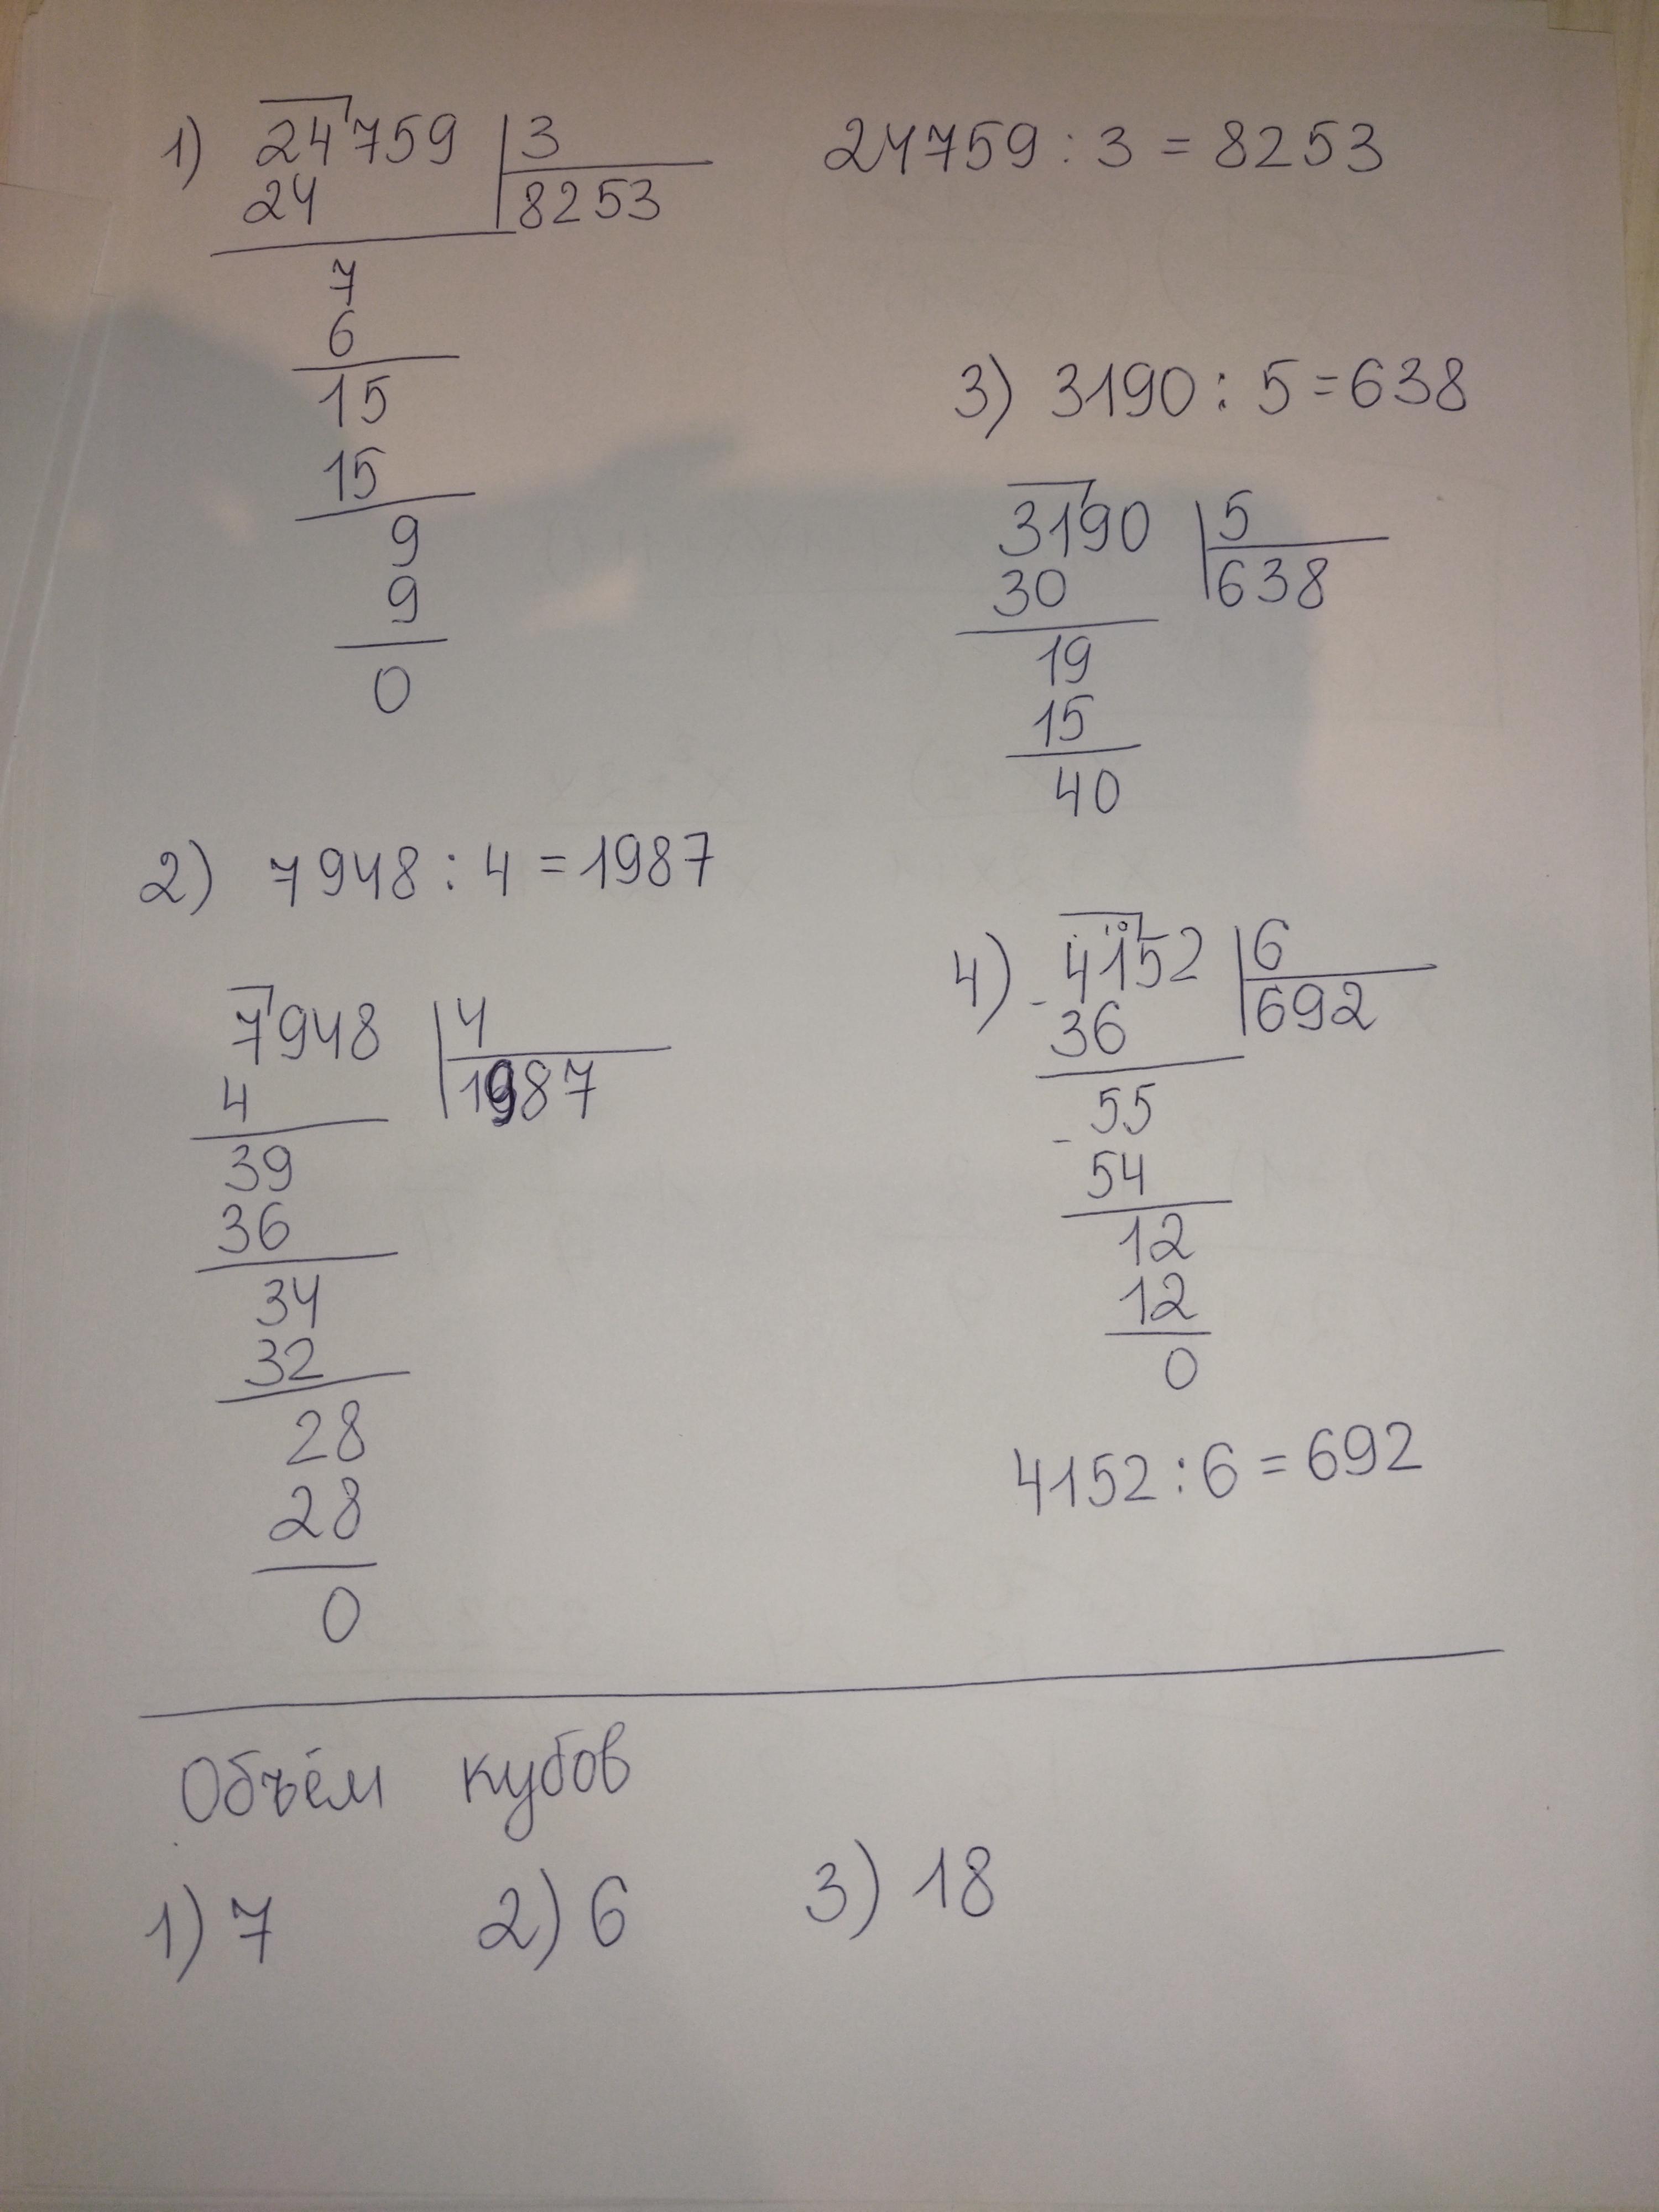 1) 24759 3
24 8253
7
6
15
15
9
9
0
24759 : 3 = 8253
2) 7948 : 4 = 1987
7948 4
4 1987
39
36
34
32
28
28
0
3) 3190 : 5 = 638
3190 5
30 638
19
15
40
4) - 4152 6
36 692
- 55
54
12
12
0
4152 : 6 = 692
Объём кубов
1) 7 2) 6 3) 18